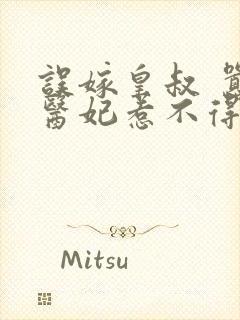 誤嫁皇叔
醫妃惹不得
Mitsu